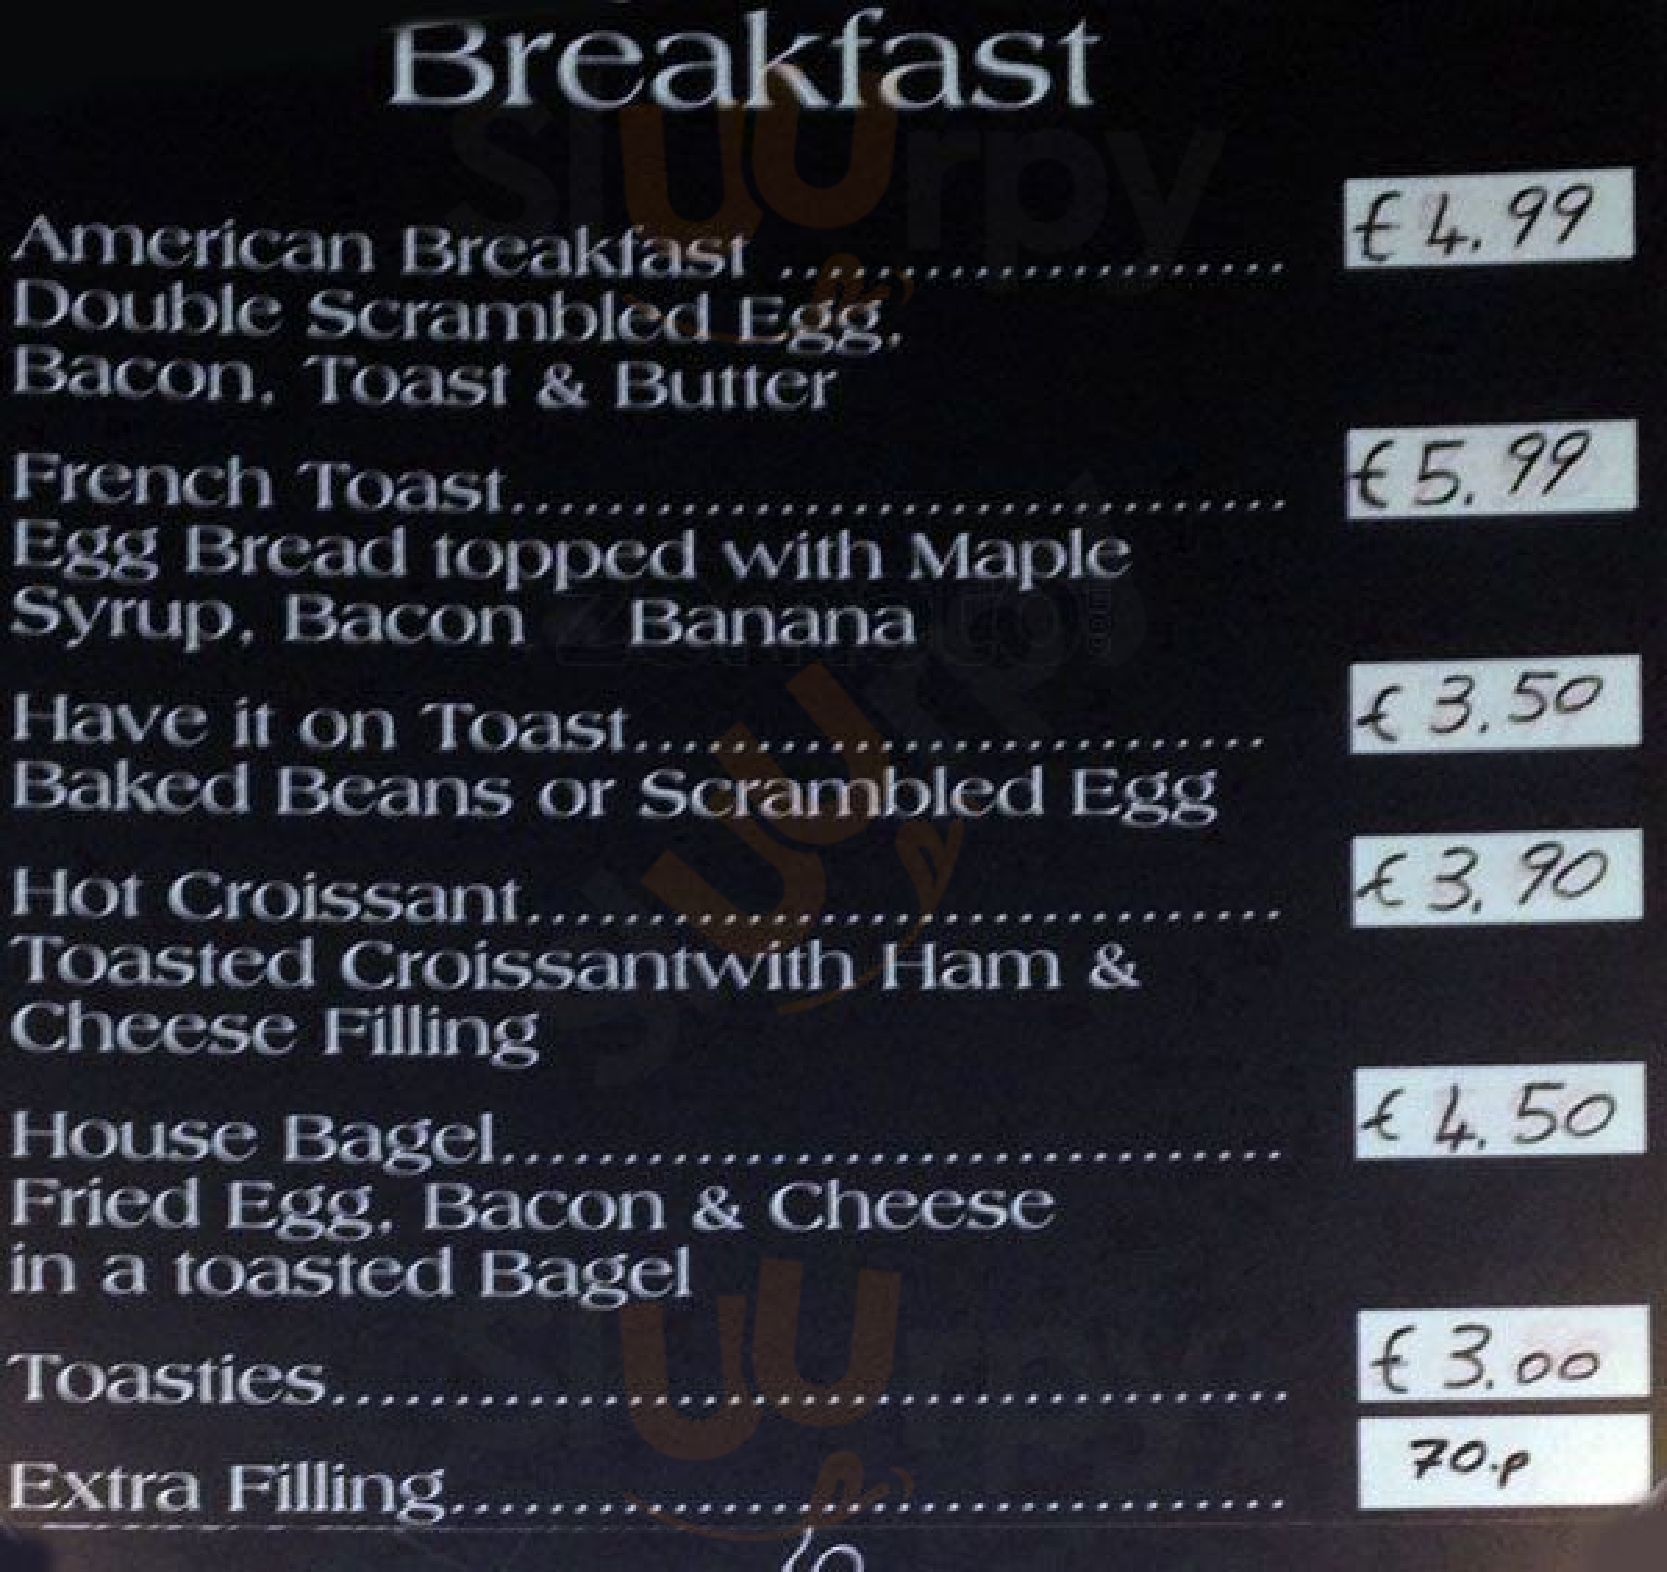 Breakfast
American Breakfast ..................... £4.99
Double Scrambled Egg,
Bacon, Toast & Butter
French Toast................................ £5.99
Egg Bread topped with Maple
Syrup, Bacon Banana
Have it on Toast.......................... £3.50
Baked Beans or Scrambled Egg
Hot Croissant............................... £3.90
Toasted Croissantwith Ham &
Cheese Filling
House Bagel................................ £4.50
Fried Egg, Bacon & Cheese
in a toasted Bagel
Toasties....................................... £3.00
Extra Filling.................................. 70.p
Sluurpy
Sluurpy
Sluurpy